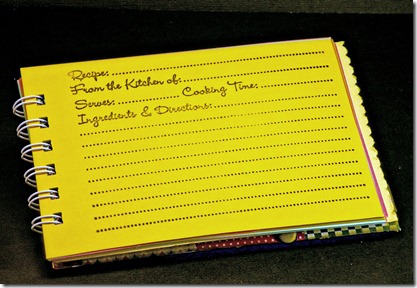 Recipe:
From the Kitchen of:
Serves: Cooking Time:
Ingredients & Directions: